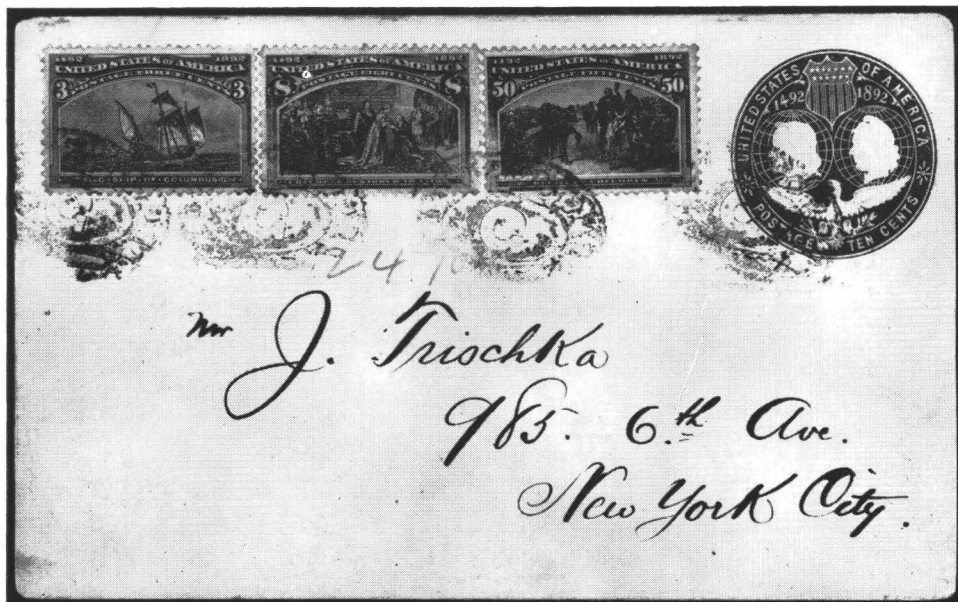 1492 1892
UNITED STATES OF AMERICA
POSTAGE THREE CENTS
3 3
FLAG SHIP OF COLUMBUS
1492 1892
UNITED STATES OF AMERICA
POSTAGE EIGHT CENTS
8 8
1492 1892
UNITED STATES OF AMERICA
POSTAGE FIFTY CENTS
50 50
UNITED STATES OF AMERICA
1492 1892
POSTAGE TEN CENTS
24
Mr J. Trischka
985. 6.th Ave.
New York City.